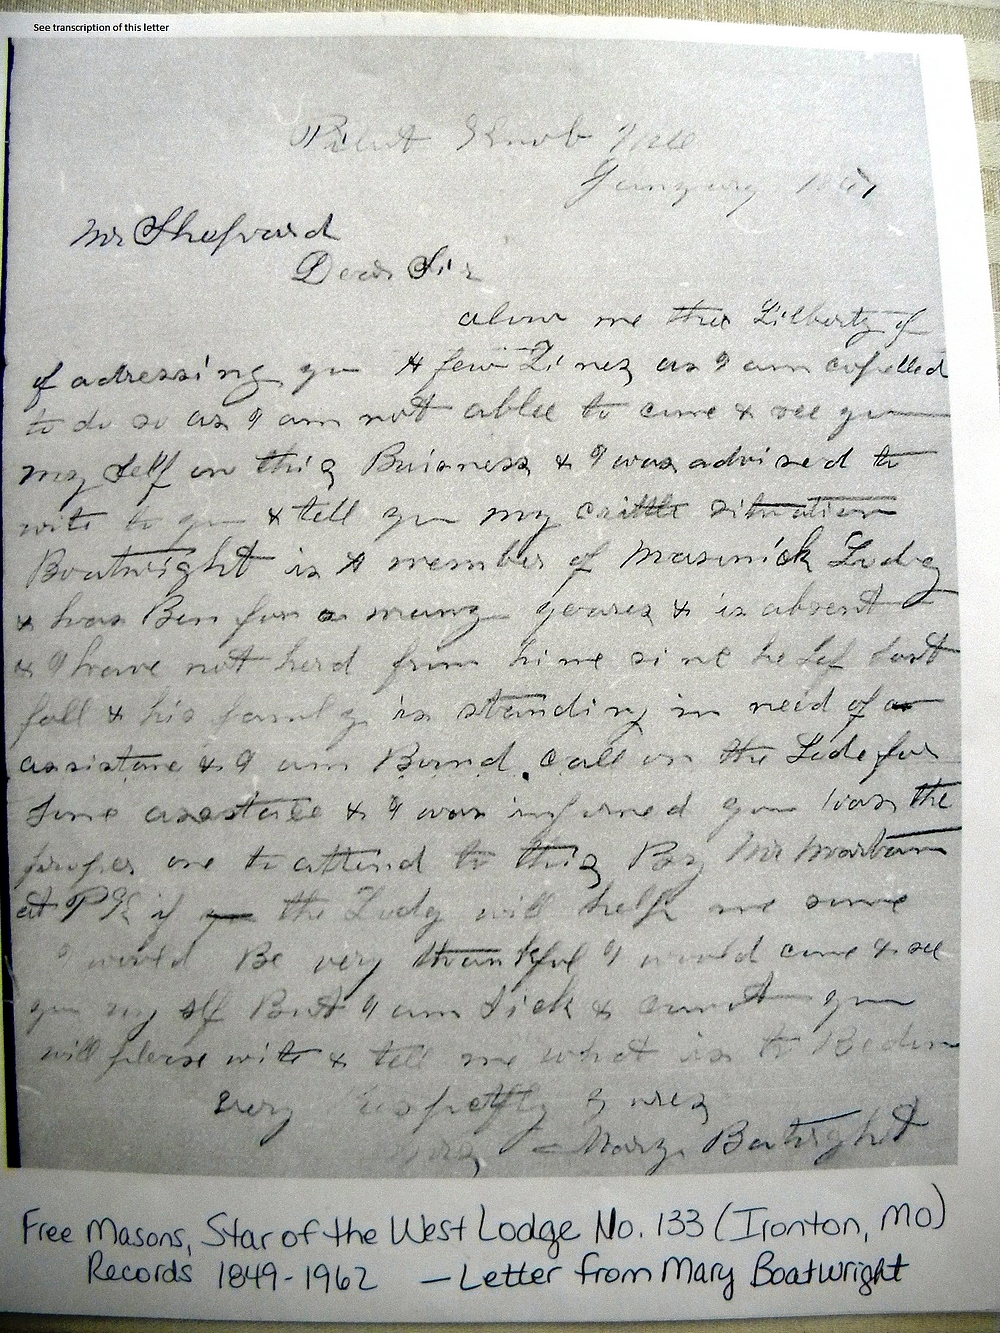 See transcription of this letter
Pilot Knob
January
Mr Shepard
Dear Sir
alow me the Lilberty of
of adressing you A few Lines as I am copelled
to do so as I am not ablee to come & see you
my self on this Buisness & I was advised to
wite to you & tell you my situation
Boatwright is A member of Masonick Lodg
& has Ben for a many yeares & is absent
& I have not herd from hime since he lef last
fall & his family is standing in neid of a
assistance & I am Bound call on the Lode for
some & I was informed you was the
proper one to attend to this By Mr
at PK if you the Lodg will help me some
I would Be very thankful I would come & see
you my self But I am sick & cannot you
will please wite & tell me what is to Bedone
very yours
Mrs Mary Boatright
Free Masons, Star of the West Lodge No. 133 (Ironton, MO)
Records 1849-1962 — Letter from Mary Boatwright